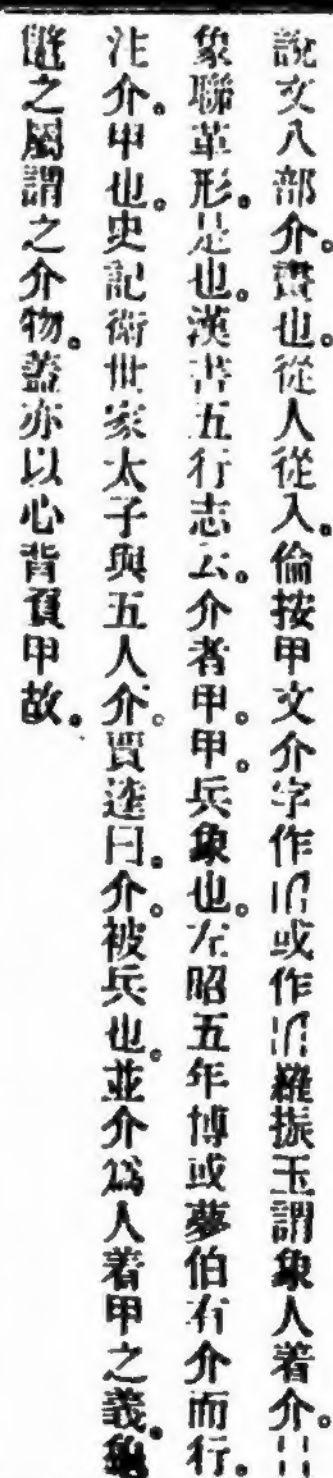 說文八部介。畫也。從人從入。倫按甲文介字作或作羅振玉謂象人着介。
象聯革形。是也。漢書五行志云。介者甲。甲。兵象也。左昭五年博或夢伯有介而行。
注介。甲也。史記衛世家太子與五人介。賈逵曰。介。被兵也。並介爲人着甲之義。龜
鼈之屬謂之介物。蓋亦以心背負甲故。